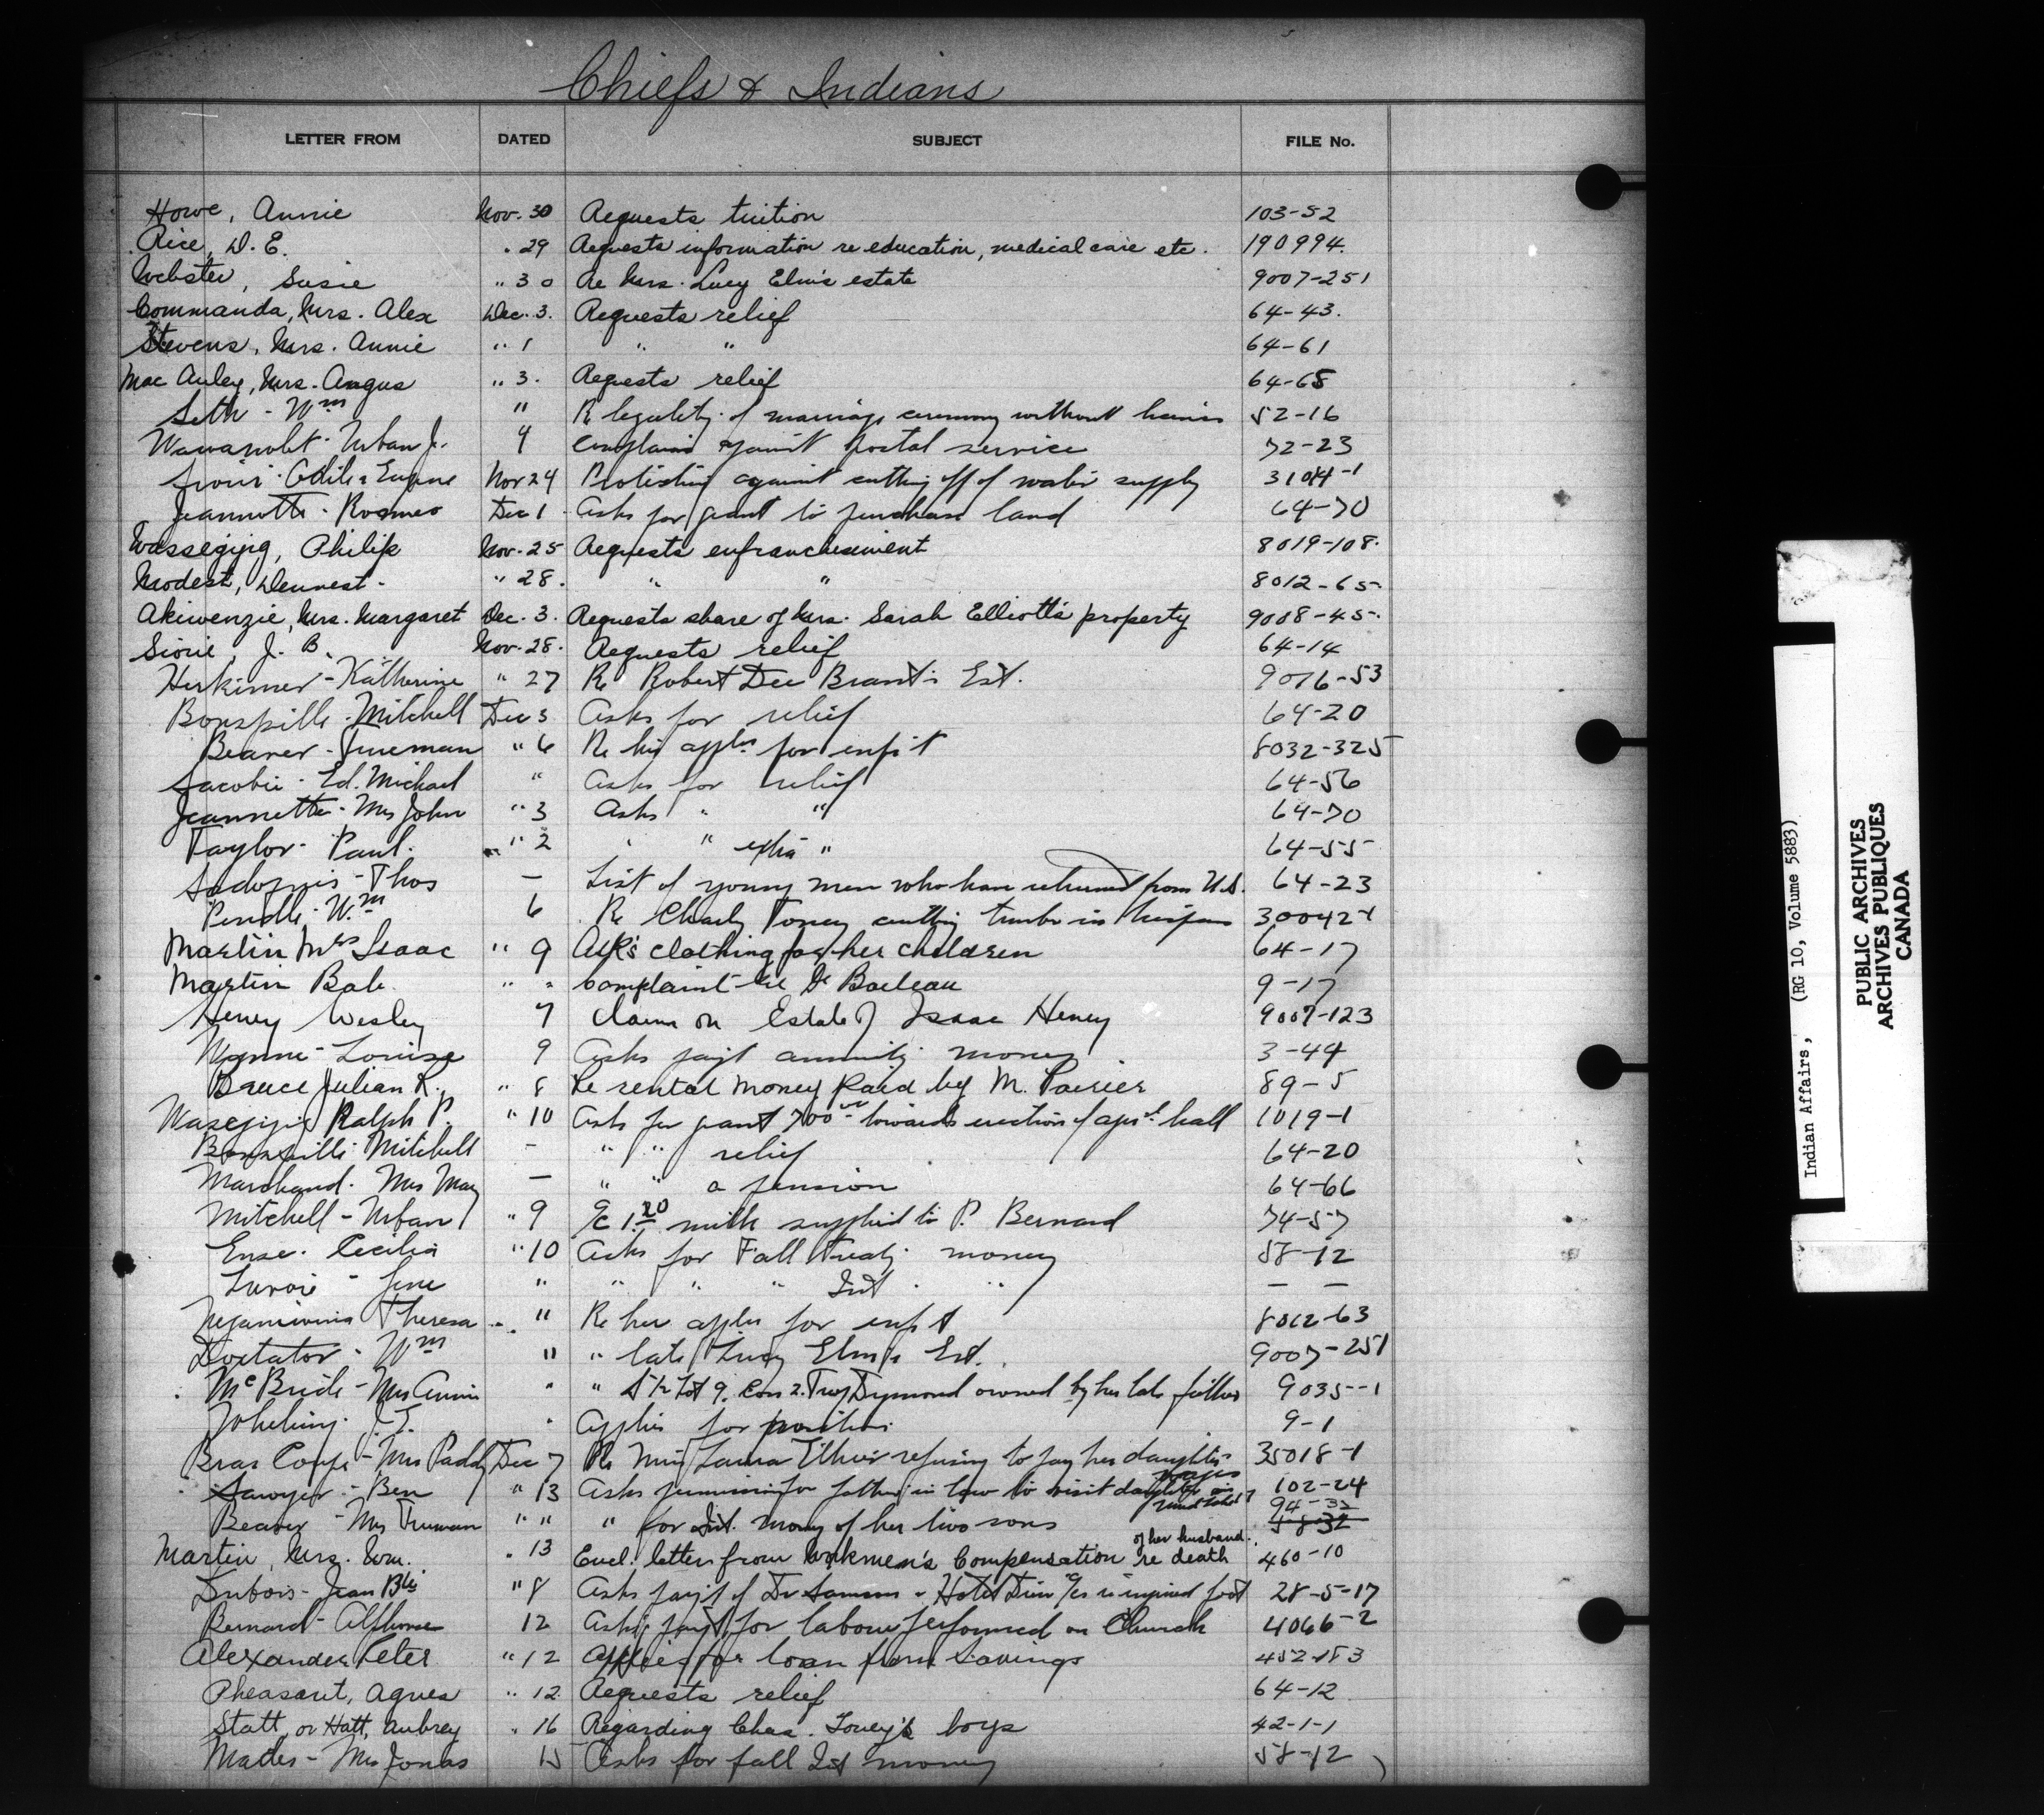 Chiefs & Indians
LETTER FROM DATED SUBJECT FILE No.
Howe, Annie Nov. 30 Requests tuition 103-52
Rice, D. E. " 29 Requests information re education, medical care etc. 190994.
Webster, Susie " 30 Re Mrs. Lucy Elm's estate 9007-251
Commanda, Mrs. Alex Dec. 3. Requests relief 64-43.
Stevens, Mrs. Annie " 1 " " 64-61
Mac Auley, Mrs. Angus " 3. Requests relief 64-68
Seth - Wm " Re legality of marriage ceremony without 52-16
Urban J. 4 Complains against postal service 72-23
Eugene Nov 24 Protesting against cutting off of water supply 3104-1
Jeannotte - Romeo Dec 1 Asks for grant to purchase land 64-70
Wassegijig, Philip Nov. 25 Requests enfranchisement 8019-108.
Modest, Dennest - " 28. " " 8012-65-
Akiwenzie, Mrs. Margaret Dec. 3. Requests share of Mrs. Sarah Elliott's property 9008-45-
Sioui, J. B. Nov. 28. Requests relief 64-14
Herkimer - Katherine " 27 Re Robert Dee Brant's Est. 9016-53
Bonspille - Mitchell Dec 3 Asks for relief 64-20
Beaver - Trueman " 6 Re his appln for enf't 8032-325
Jacobie - Ed. Michael " Asks for relief 64-56
Jeannette - Mrs John " 3 Asks " " 64-70
Taylor - Paul. " 2 " " extra " 64-55-
Thos — List of young men who have returned from U.S. 64-23
Wm 6 Re Charly Toney cutting timber in 30042-1
Martin Mrs Isaac " 9 Ask's clothing for her children 64-17
Martin Bab. " " Complaint re Dr Boileau 9-17
Henry Wesley 7 Claim on Estate of Isaac Henry 9007-123
Wynne - Louise 9 Asks payt annuity money 3-44
Bruce Julian R. " 8 Re rental money paid by M. Poirier 89-5
Wasegijig Ralph P. " 10 Asks for grant 700 towards erection of agr'l hall 1019-1
Bonspille Mitchell - " " relief 64-20
Marchand - Mrs May — " " a pension 64-66
Mitchell - Urban " 9 a/c 1.20 milk supplied to P. Bernard 74-57
Cecilia " 10 Asks for Fall Treaty money 58-12
" " " " Int " " — —
Theresa " Re her appln for enf't 8012-63
Doxtator - Wm " " late Lucy Elm's Est. 9007-251
McBride - Mrs Annie " " S ½ Lot 9. Con 2. Twp Tyrnond owned by her late father 9035-1
J. T. " Applies for position 9-1
Bras Coupe - Mrs Paddy Dec 7 Re Miss Laura Ethier refusing to pay her daughter wages 35018-1
Sawyer - Ben " 13 Asks permission for father in law to visit daughter in 102-24
Beaver - Mrs Truman " " " for Int. money of her two sons 94-32 58-32
Martin, Mrs. Wm. " 13 Encl. letters from Workmen's Compensation re death of her husband. 460-10
Dubois - Jean Bte " 8 Asks payt of Dr & Hotel Dieu a/cs re injured foot 28-5-17
Bernard - Alphonse 12 Asks payt for labour performed on Church 4066-2
Alexander Peter " 12 Applies for loan from Savings 452-183
Pheasant, Agnes " 12. Requests relief 64-12
Statt, or Hatt, Aubrey " 16 Regarding Chas. Toney's boys 42-1-1
Mrs Jonas 15 Asks for fall Int money 58-12
Indian Affairs, (RG 10, Volume 5883)
PUBLIC ARCHIVES
ARCHIVES PUBLIQUES
CANADA